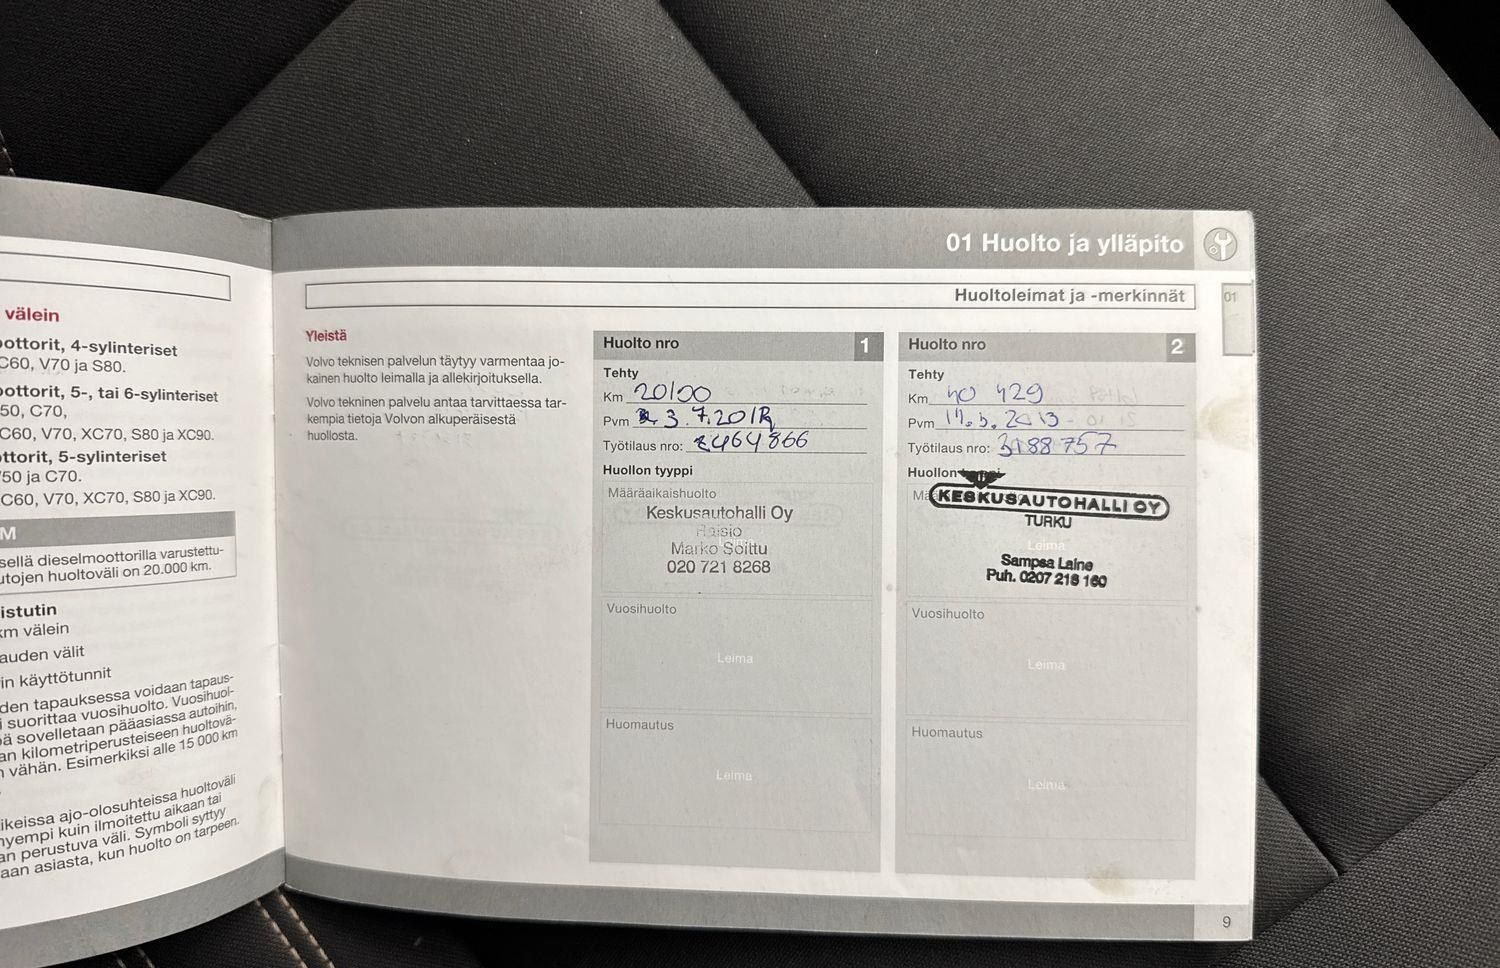 välein
ottorit, 4-sylinteriset
C60, V70 ja S80.
ottorit, 5-, tai 6-sylinteriset
50, C70,
C60, V70, XC70, S80 ja XC90.
ttorit, 5-sylinteriset
V50 ja C70.
C60, V70, XC70, S80 ja XC90.
M
sellä dieselmoottorilla varustettu-
utojen huoltoväli on 20.000 km.
istutin
km välein
auden välit
in käyttötunnit
den tapauksessa voidaan tapaus-
i suorittaa vuosihuolto. Vuosihuol-
ä sovelletaan pääasiassa autoihin,
an kilometriperusteiseen huoltovä-
n vähän. Esimerkiksi alle 15 000 km
ikeissa ajo-olosuhteissa huoltoväli
nyempi kuin ilmoitettu aikaan tai
an perustuva väli. Symboli syttyy
aan asiasta, kun huolto on tarpeen.
01 Huolto ja ylläpito
01
Huoltoleimat ja -merkinnät
Yleistä
Volvo teknisen palvelun täytyy varmentaa jo-
kainen huolto leimalla ja allekirjoituksella.
Volvo tekninen palvelu antaa tarvittaessa tar-
kempia tietoja Volvon alkuperäisestä
huollosta.
Huolto nro 1
Tehty
Km 20100
Pvm 3.7.2012
Työtilaus nro: 2464866
Huollon tyyppi
Määräaikaishuolto
Keskusautohalli Oy
Raisio
Leima
Marko Soittu
020 721 8268
Vuosihuolto
Leima
Huomautus
Leima
Huolto nro 2
Tehty
Km 40 429
Pvm 2013
Työtilaus nro: 3188757
Huollon
KESKUSAUTOHALLI OY
TURKU
Leima
Sampsa Laine
Puh. 0207 216 160
Vuosihuolto
Leima
Huomautus
Leima
9